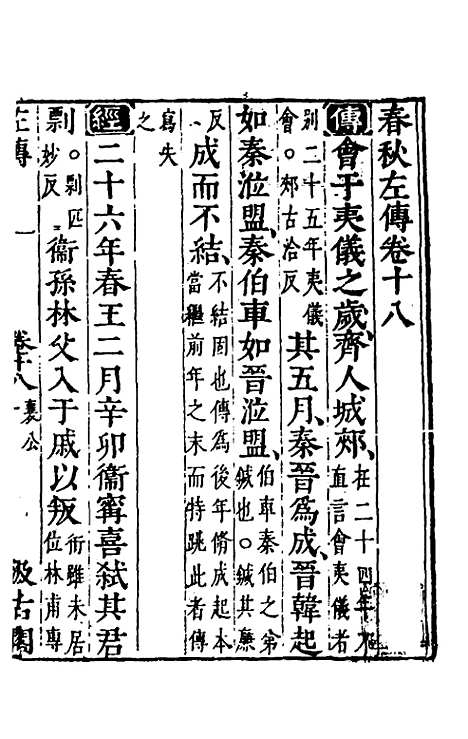 春秋左傳卷十八
傳會于夷儀之歲、齊人城郟、在二十四年不直言會夷儀者
别二十五年夷儀會○郟古洽反其五月、秦晉爲成、晉韓起
如秦涖盟、秦伯車如晉涖盟、伯車秦伯之弟鍼也○鍼其廉
反成而不結、不結固也傳爲後年脩成起本當繼前年之末而特跳此者傳
寫失之
經二十六年春王二月辛卯衞甯喜弑其君
剽○剽匹妙反衞孫林父入于戚以叛衎雖未居位林甫專
左傳 一 卷十八 襄公 汲古閣